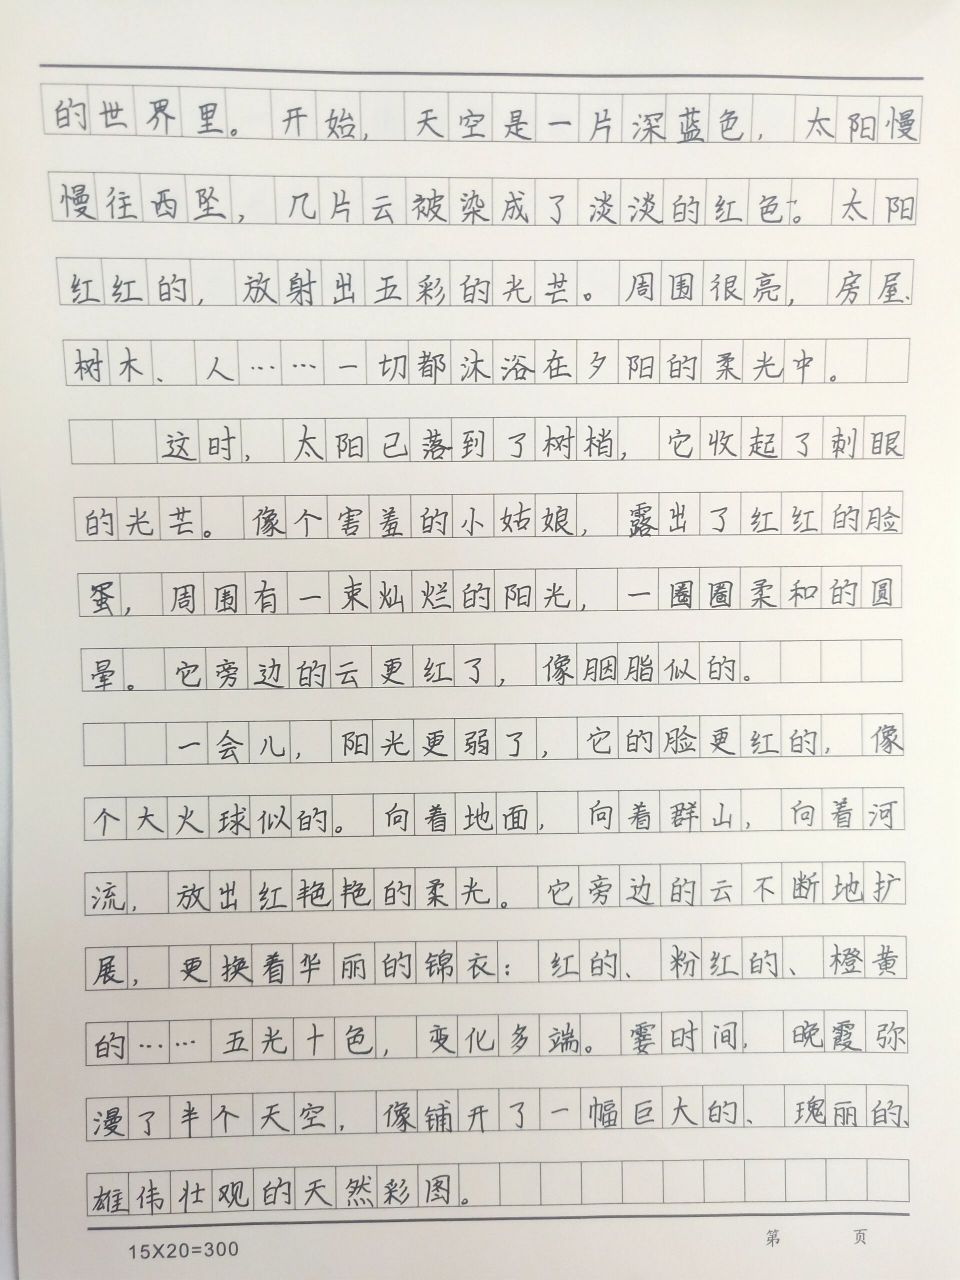 的世界里。开始，天空是一片深蓝色，太阳慢
慢往西坠，几片云被染成了淡淡的红色。太阳
红红的，放射出五彩的光芒。周围很亮，房屋、
树木、人……一切都沐浴在夕阳的柔光中。
这时，太阳已落到了树梢，它收起了刺眼
的光芒。像个害羞的小姑娘，露出了红红的脸
蛋，周围有一束灿烂的阳光，一圈圈柔和的圆
晕。它旁边的云更红了，像胭脂似的。
一会儿，阳光更弱了，它的脸更红的，像
个大火球似的。向着地面，向着群山，向着河
流，放出红艳艳的柔光。它旁边的云不断地扩
展，更换着华丽的锦衣：红的、粉红的、橙黄
的……五光十色，变化多端。霎时间，晚霞弥
漫了半个天空，像铺开了一幅巨大的、瑰丽的、
雄伟壮观的天然彩图。
15X20=300
第 页